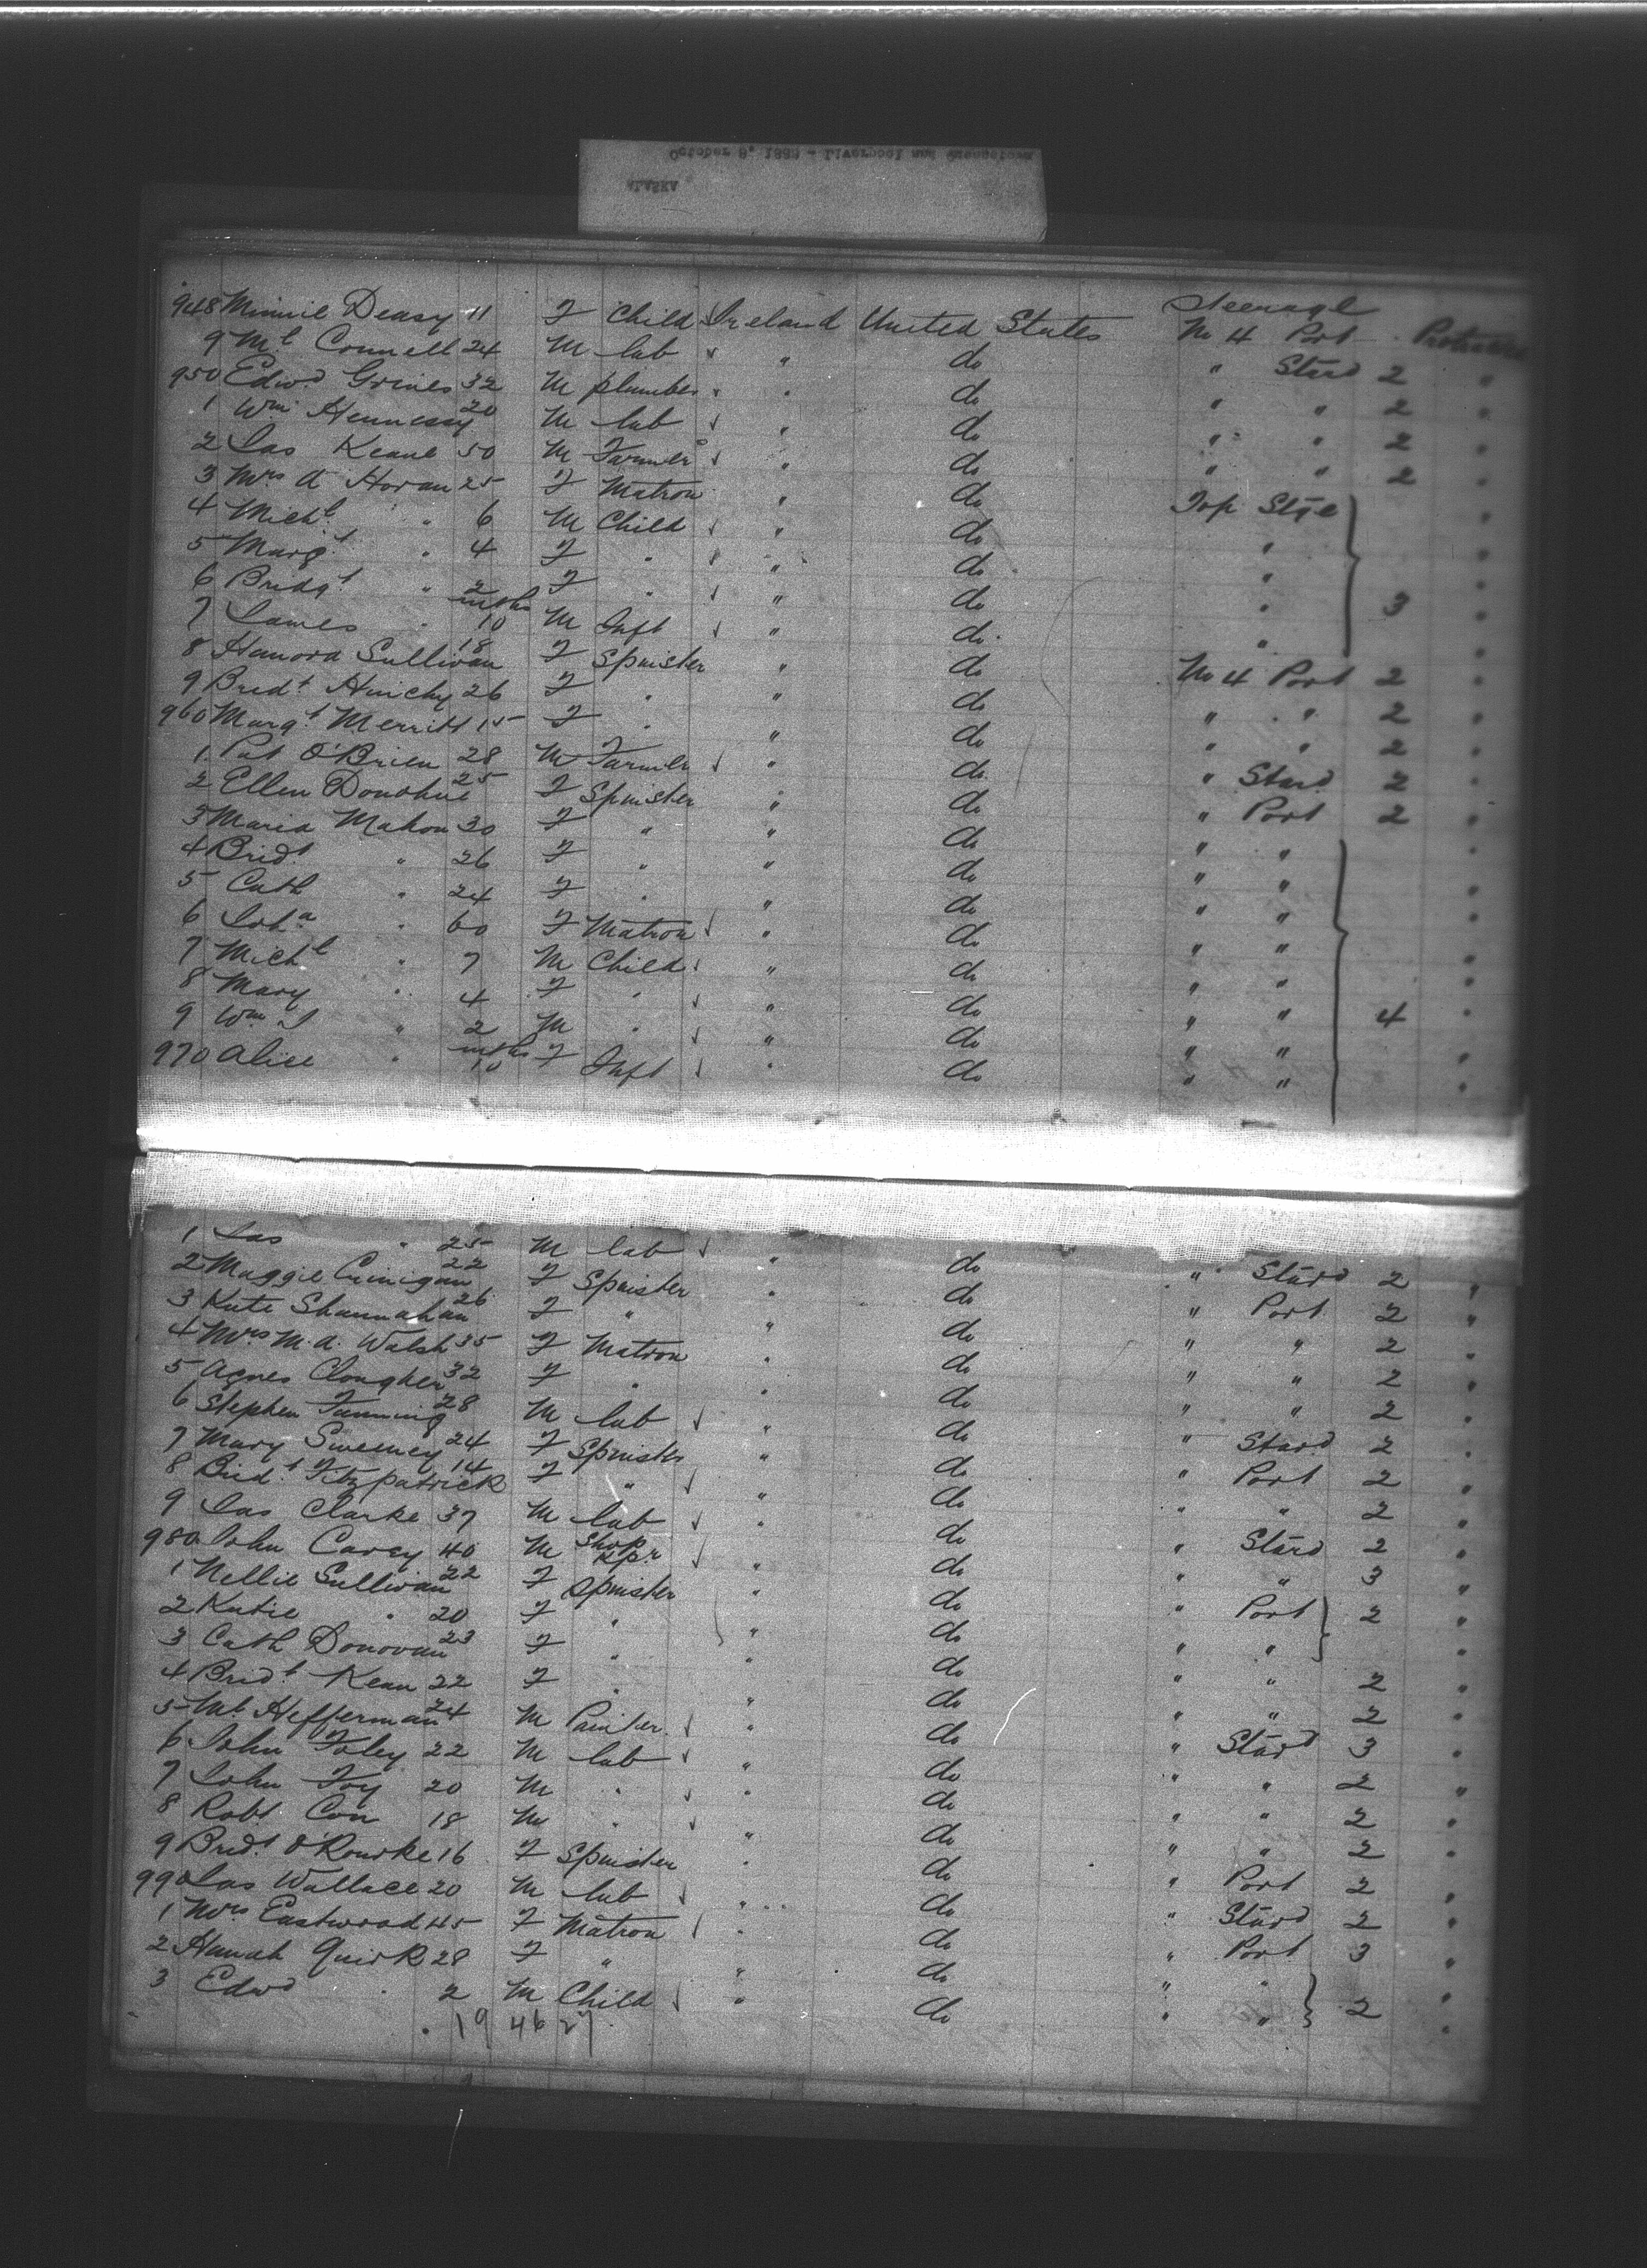 October 9, 1883 - Liverpool and Queenstown
ALASKA
Steerage
948 Minnie Deasy 11 F Child Ireland United States No 4 Port
9 Ml Connell 24 M lab " do " Stard 2 "
950 Edwd Grines 32 M plumber " do " " 2 "
1 Wm Hennessy 20 M lab " do " " 2 "
2 Jas Keane 50 M Farmer " do " " 2 "
3 Mrs A Horan 25 F Matron " do Top Stge "
4 Michl " 6 M Child " do " "
5 Margt " 4 F " " do " "
6 Bridgt " 2 F " " do " 3 "
7 James " mths 10 M Inft " do " "
8 Hanora Sullivan 18 F Spinster " do No 4 Port 2 "
9 Bridt Hinchy 26 F " " do " " 2 "
960 Margt Merritt 15 F " " do " " 2 "
1 Pat O'Brien 28 M Farmer " do " Stard 2 "
2 Ellen Donohue 25 F Spinster " do " Port 2 "
3 Maria Mahon 30 F " " do " " "
4 Bridt " 26 F " " do " " "
5 Cath " 24 F " " do " " "
6 Joha " 60 F Matron " do " " "
7 Michl " 7 M Child " do " " "
8 Mary " 4 F " " do " " 4 "
9 Wm J " 2 M " " do " " "
970 Alice " mths 10 F Inft " do " " "
1 Jas " 25 M lab " do " Stard 2 "
2 Maggie Cunigan 22 F Spinster " do " Port 2 "
3 Kate Shannahan 26 F " " do " " 2 "
4 Mrs M. A. Walsh 35 F Matron " do " " 2 "
5 Agnes Clougher 32 F " " do " " 2 "
6 Stephen Fanning 28 M lab " do " Stard 2 "
7 Mary Sweeney 24 F Spinster " do " Port 2 "
8 Bridt Fitzpatrick 14 F " " do " " 2 "
9 Jas Clarke 37 M lab " do " Stard 2 "
980 John Carey 40 M Shop Kpr " do " " 3 "
1 Nellie Sullivan 22 F Spinster " do " Port 2 "
2 Katie " 20 F " " do " " "
3 Cath Donovan 23 F " " do " " 2 "
4 Bridt Kean 22 F " " do " " 2 "
5 Ml Hefferman 24 M Painter " do " Stard 3 "
6 John Foley 22 M lab " do " " 2 "
7 John Foy 20 M " " do " " 2 "
8 Robt Con 18 M " " do " " 2 "
9 Bridt O'Rourke 16 F Spinster " do " Port 2 "
990 Jas Wallace 20 M lab " do " Stard 2 "
1 Mrs Eastwood 45 F Matron " do " Port 3 "
2 Hanah Quirk 28 F " " do " " "
3 Edwd " 2 M Child " do " " 2 "
19 46 27